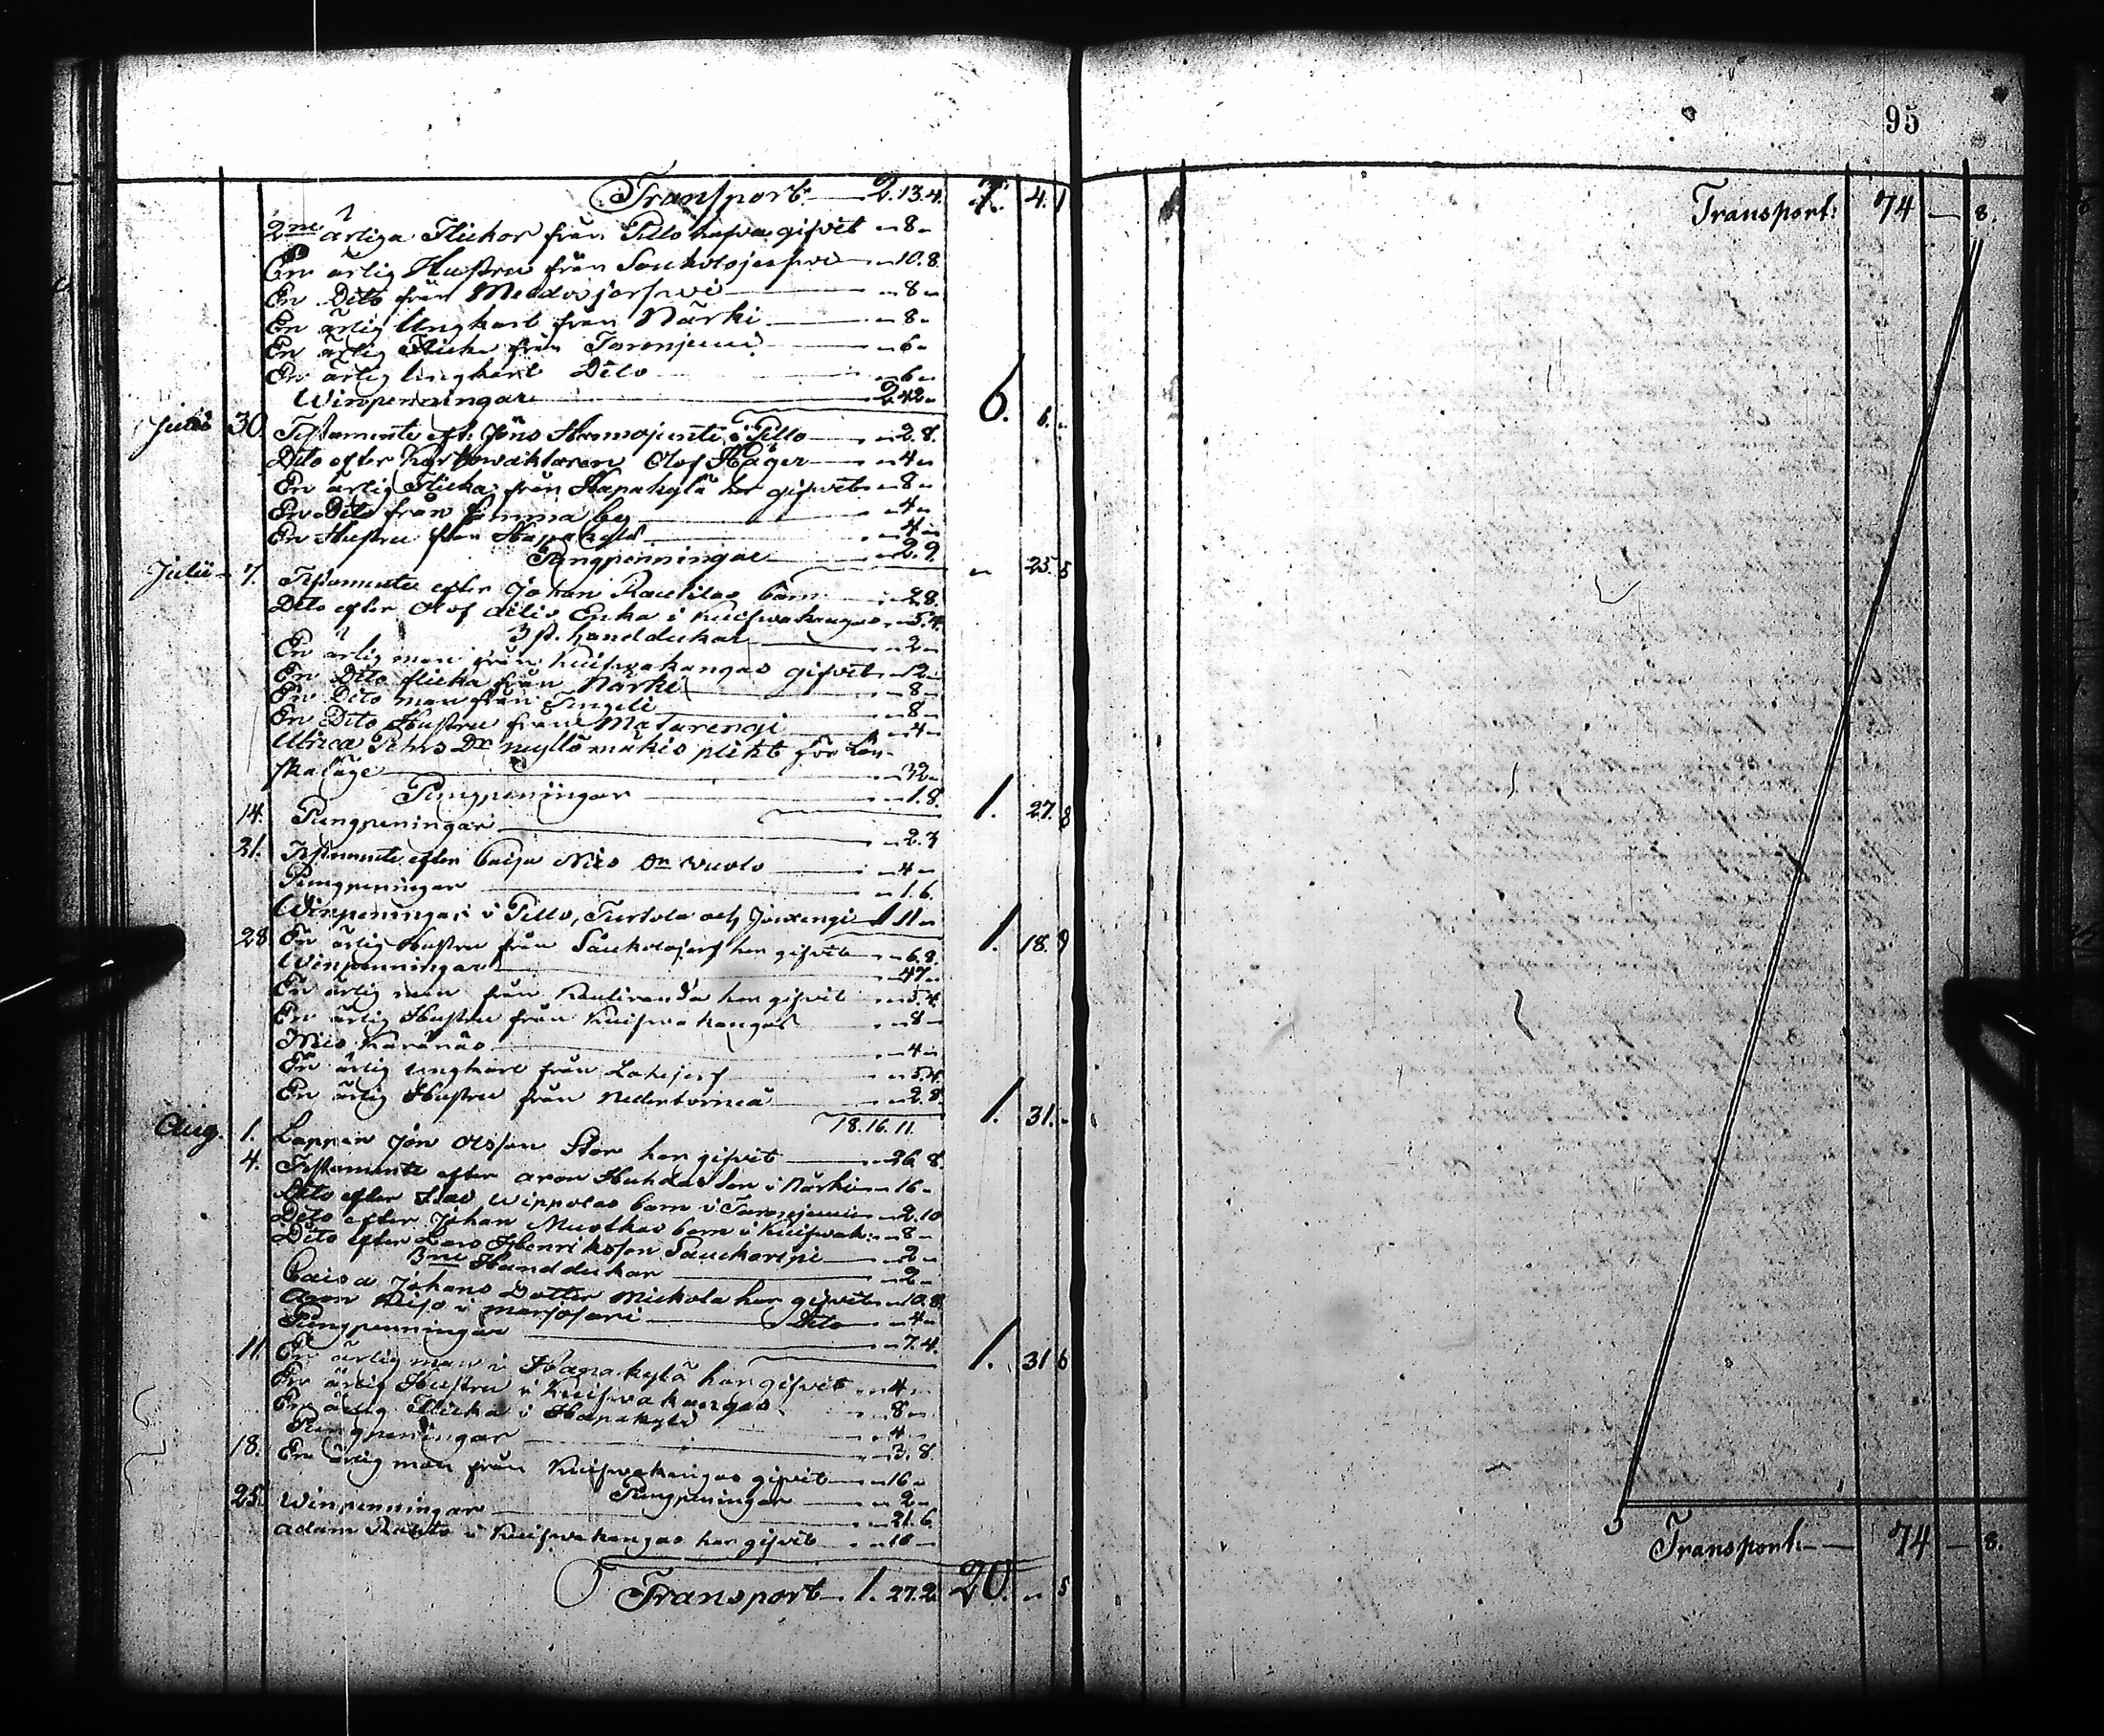 Transport — 2.13.4. 7. 4. 1
2ne ärliga Flickor från Pello hafva gifvit „ 8 „
En ärlig Hustru från „ 10.8.
En Dito från „ 8 „
En ärlig Ungkarl från Närki „ 8 „
En ärlig Flicka från „ 6 „
En ärlig Ungkarl Dito „ 6 „
Winpenningar 2.42 „ 6. 6. „
30. Testamente eft: Jöns i Pello „ 2.8.
Dito efter Olof Häger „ 4 „
En ärlig Flicka från Hapakylä har gifvit „ 8 „
En Dito från by „ 4 „
En Hustru från Hapakylä „ 4 „
Pungpenningar „ 2.9. „ 25. 5
Julii 7. Testamente efter Johan Rautilas barn „ 2.8.
Dito efter Olof Erika i Kuifwakangas „ 5.4.
3 st. handdukar „ 2 „
En ärlig man från Kuifwakangas gifvit „ 12 „
En Dito flicka från Närki „ 8 „
En Dito man från „ 8 „
En Dito Hustru från Matarengi „ 4 „
Ulrica Dr plikt för Lön-
skaläge „ 32 „
Pungpeningar „ 1.8. 1. 27. 8
14. Pungpeningar „ 2.3
21. Testamente efter Caisa Nils Dr Vuolo „ 4 „
Pungpeningar „ 1.6.
Winpeningar i Pello, Turtola och Jouxengi 1.11 „ 1. 18. 9
28. En ärlig Hustru från har gifvit „ 6.8.
Winpenningar „ 47 „
En ärlig man från har gifvit „ 5.4.
En ärlig Hustru från Kuifwakangas „ 8 „
Nils „ 4 „
En ärlig ungkarl från „ 5.4.
En ärlig Hustru från Nedertorneå „ 2.8. 1. 31. „
18.16.11.
Aug. 1. Lappen Jon Olsson Stor har gifvit „ 26.8.
4. Testamente efter Aron son i Närki „ 16 „
Dito efter barn i „ 2.10
Dito efter Johan Muotkas barn i Kuifwak: „ 8 „
Dito efter Lars Henriksson „ 2 „
3ne Handdukar „ 2 „
Caisa Johans Dotter Mickola har gifvit „ 10.8.
Aron i Marjosari Dito „ 4 „
Pungpenningar „ 7.4. 1. 31. 6
11. En ärlig man i Hapakylä har gifvit „ 4 „
En ärlig Hustru i Kuifwakangas „ 8 „
En ärlig Flicka i Hapakylä „ 4 „
Pungpeningar „ 3.8.
18. En ärlig man från Kuifwakangas gifvit „ 16 „
Pungpeningar „ 2 „
25. Winpenningar „ 21.6.
Adam i Kuifwakangas har gifvit „ 16 „
Transport — 1.27.2. 20. „ 5
95
Transport: 74 — 8.
Transport: — 74 — 8.